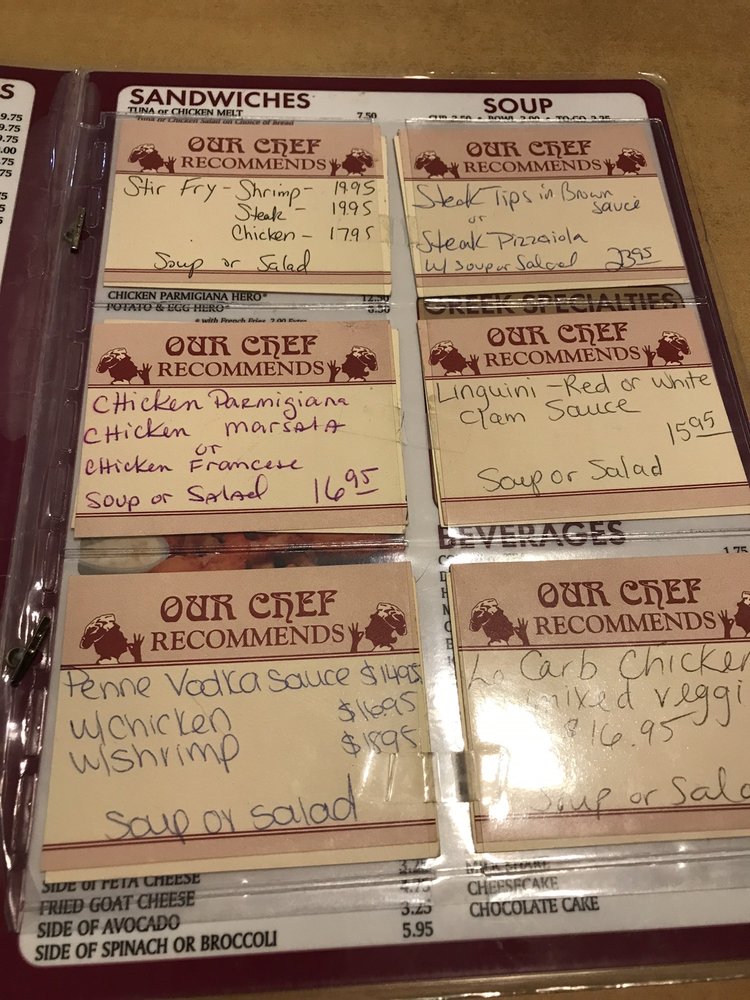 S
9.75
9.75
9.75
.00
.75
.75
.75
.75
SANDWICHES
TUNA or CHICKEN MELT 7.50
Tuna or Chicken Salad on Choice of Bread
OUR CHEF
RECOMMENDS
Stir Fry - Shrimp - 19.95
Steak - 19.95
Chicken - 17.95
Soup or Salad
CHICKEN PARMIGIANA HERO* 12.50
POTATO & EGG HERO*
* with French Fries 2.00 Extra
OUR CHEF
RECOMMENDS
CHicken Parmigiana
CHicken marsala
or
CHicken Francese
Soup or Salad 16.95
OUR CHEF
RECOMMENDS
Penne Vodka Sauce $14.95
w/chicken $16.95
w/shrimp $18.95
Soup or salad
3.25
SIDE of FETA CHEESE 4.75
FRIED GOAT CHEESE 3.25
SIDE OF AVOCADO 5.95
SIDE OF SPINACH OR BROCCOLI
SOUP
CUP 2.50 • BOWL 3.00 • TO-GO 3.25
OUR CHEF
RECOMMENDS
Steak Tips in Brown
Sauce
or
Steak Pizzaiola
w/ soup or Salad 23.95
GREEK SPECIALTIES
OUR CHEF
RECOMMENDS
Linguini - Red or White
Clam Sauce
15.95
Soup or Salad
BEVERAGES
1.75
OUR CHEF
RECOMMENDS
Lo Carb Chicken
mixed veggi
$16.95
Soup or Sala
MILK SHAKE
CHEESECAKE
CHOCOLATE CAKE